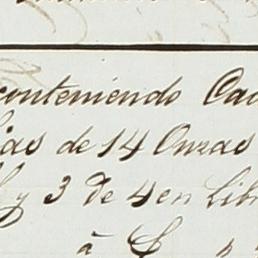 conteniendo Ca
ias de 14 Onzas
y 3 de 4 en Lib
à